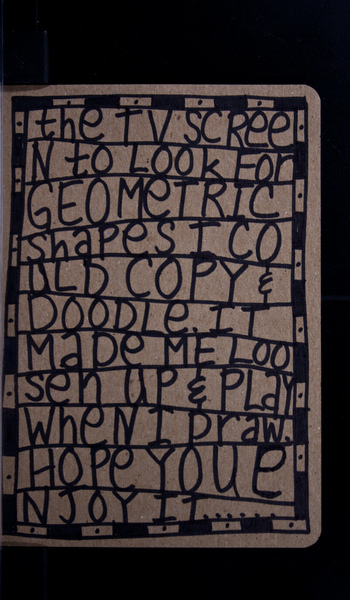 the TV SCREE
N to LOOK FOR
GEOMETRIC
shapes I CO
ULD COPY &
DOODLE. IT
MADE ME LOO
SEN UP & PLAY
WHEN I DRAW.
HOPE YOU E
NJOY IT......